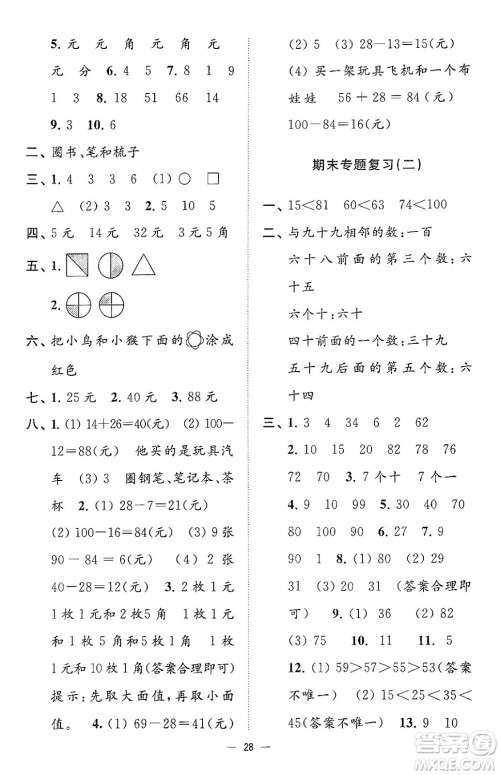 5. 元 元 角 元 角 元
元 分 6. 4 5 7. 8 1 9
1 3 8. 18 51 66 14
9. 3 10. 6
二、圈书、笔和梳子
三、1. 4 3 3 6 2. (1) ○ □
△ (2) 3 2 5 10 5
四、5元 14元 32元 5角
五、1.
2.
六、把小鸟和小猴下面的涂成
红色
七、1. 25元 2. 40元 3. 88元
八、1. (1) 14+26=40(元) (2) 100-
12=88(元) 他买的是玩具汽
车 (3) 3 圈钢笔、笔记本、茶
杯 2. (1) 28-7=21(元)
(2) 100-16=84(元) (3) 9张
90-84=6(元) (4) 2张
40-28=12(元) 3. 2枚1元
1枚1元和2枚5角 1枚1
元和1枚5角和5枚1角 1枚
1元和10枚1角(答案合理即可)
提示:先数大面值,再数小面
值。 4. (1) 28+56=84(元)
(2) 5 (3) 28-13=15(元)
(4) 买一架玩具飞机和一个布
娃娃 56+28=84(元)
100-84=16(元)
期末专题复习(二)
一、15<81 60<63 74<100
二、与九十九相邻的数:一百
六十八前面的第三个数:六
十五
六个十:六十
四十前面的一个数:三十九
五十九后面的第五个数:六
十四
三、1. 34 37 6 2 62
2. 10 15 91 92 38
72 70 3. 7个十 7个一
4. 9 30 49 70 80
90 1 5. (1) 82 0 (2) 29
31 (3) 31(答案合理即可)
6. 100 7. 90 8. 57 58
59 60 9. (1) 66 (2) 82
(3) 75 10. 24 11. 5
12. (1) 59>57>55(答案不
唯一) (2) 15<25<35<
45(答案不唯一) 13. 9 4
28